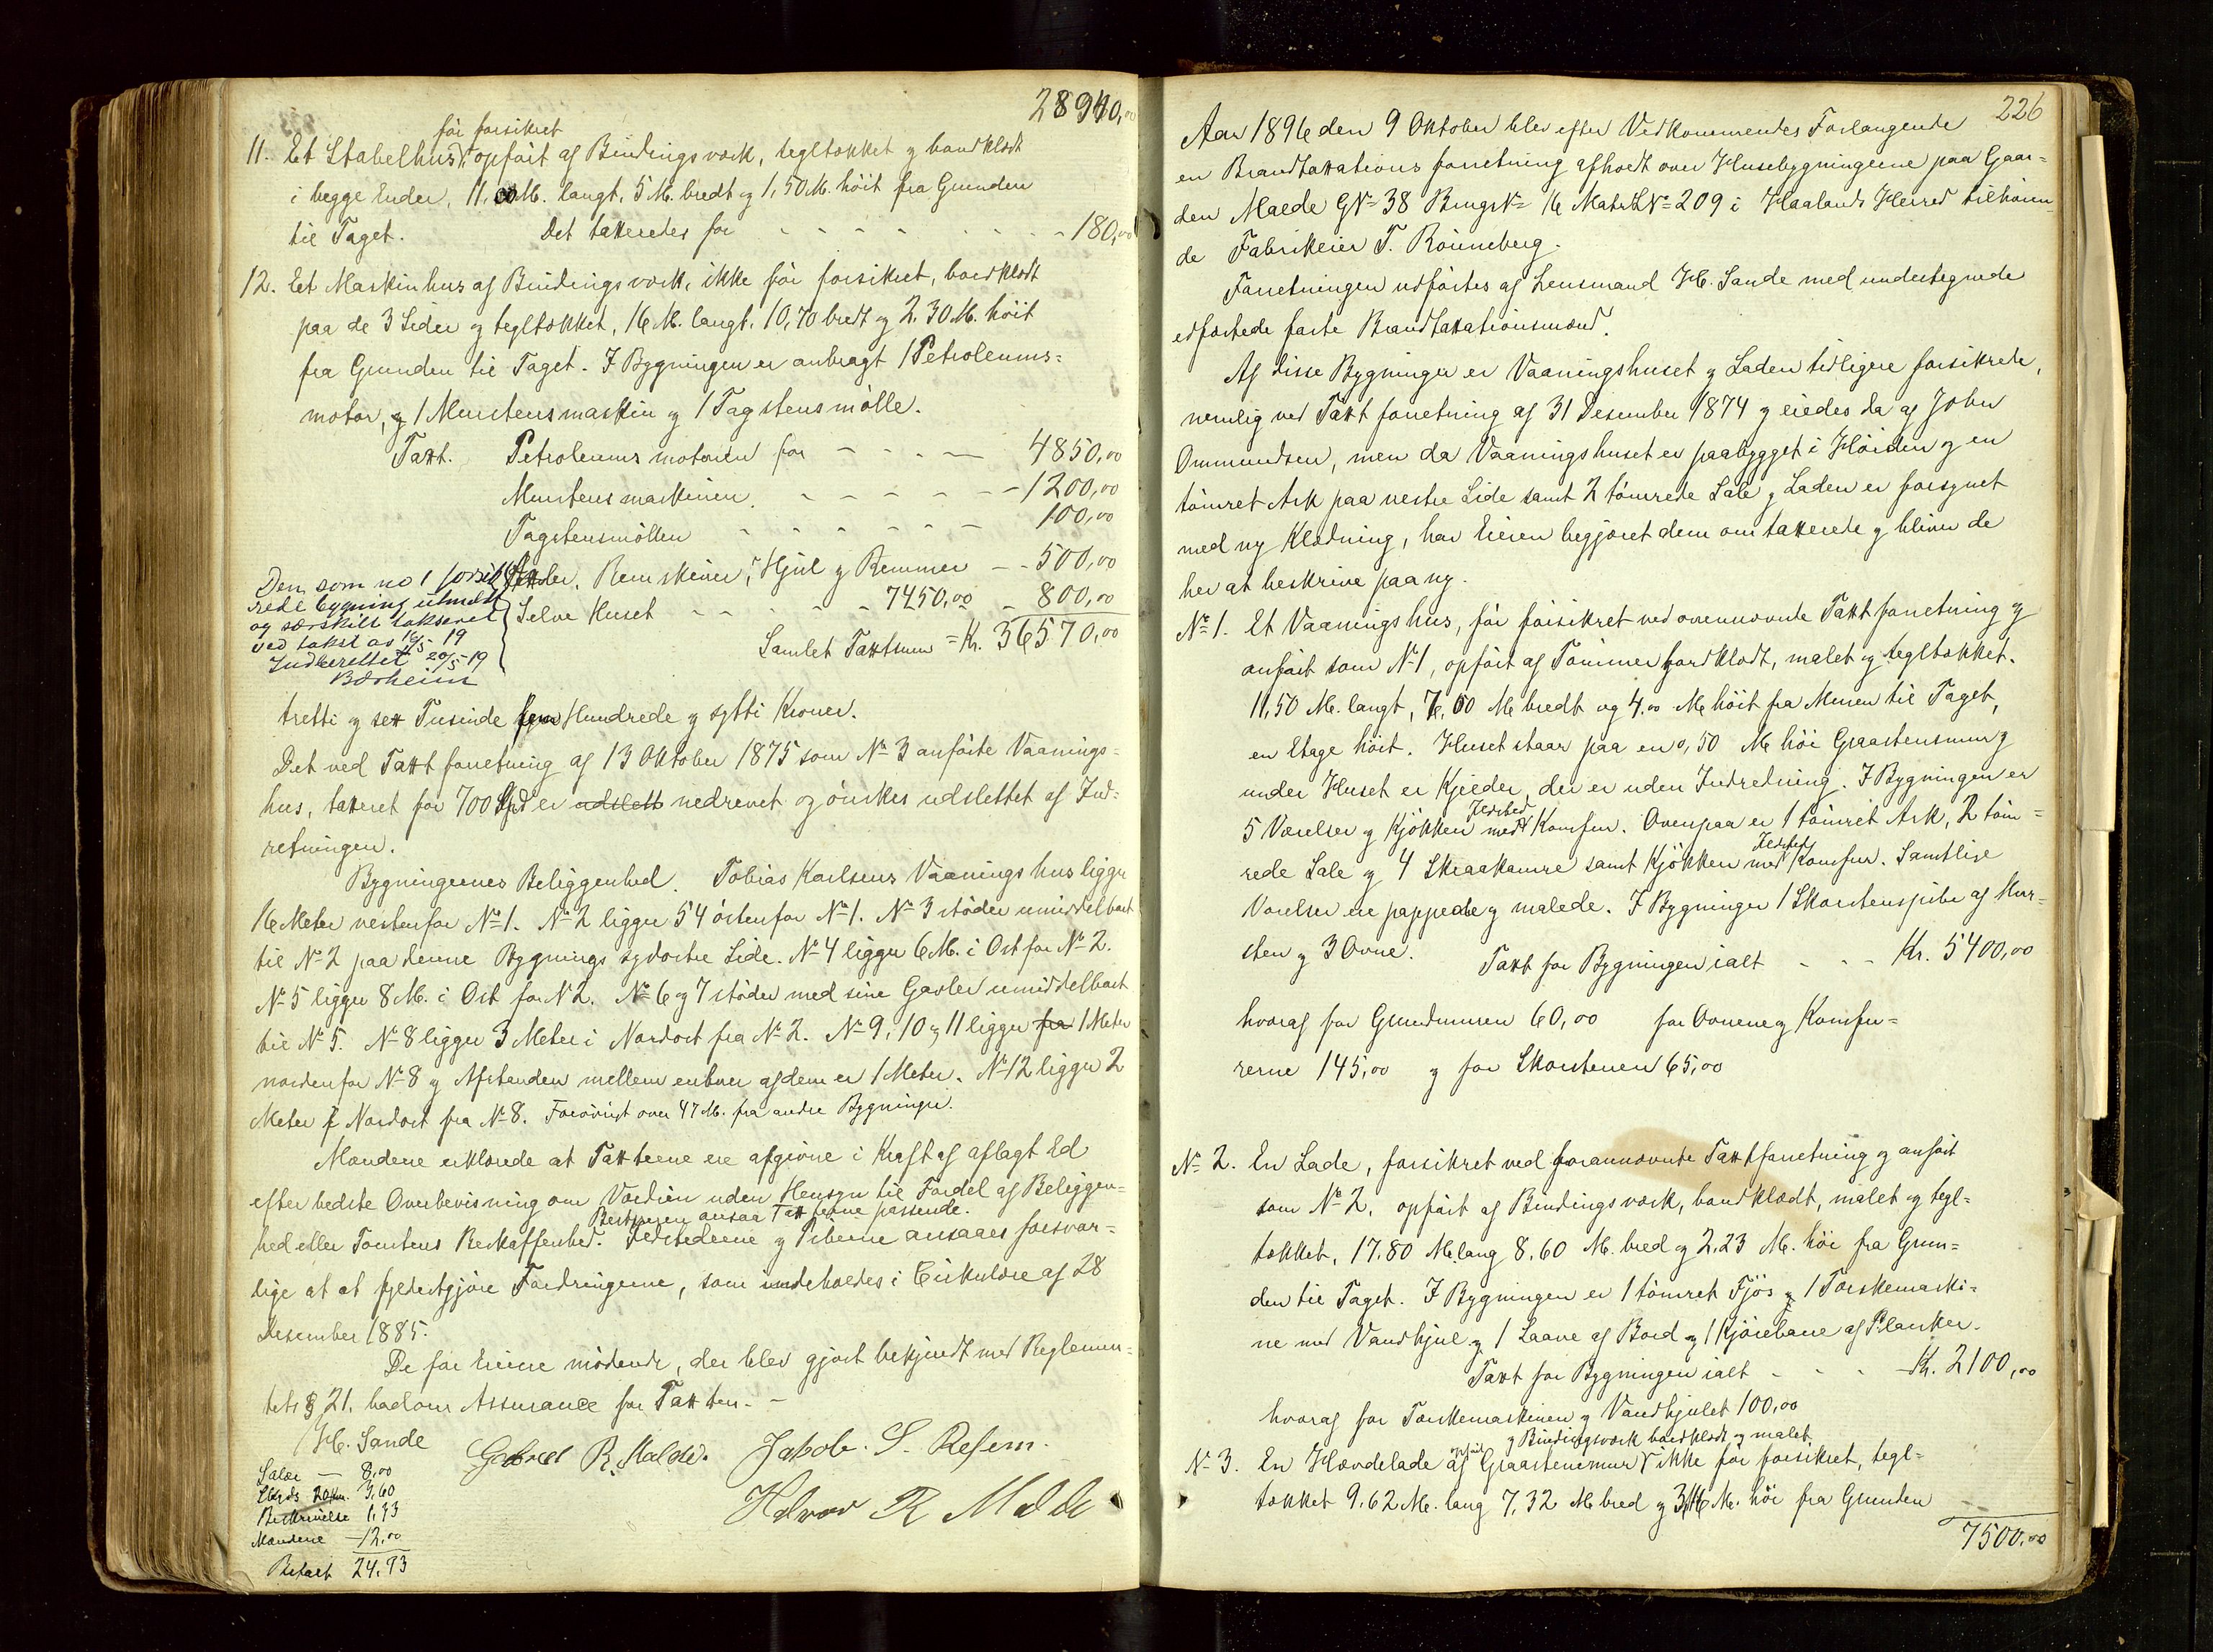 28940,00
før forsikret
11. Et Stabelhus, opført af Bindingsværk, tegltækket og bordklædt
i begge Ender, 11,00 M. langt, 5 M. bredt og 1,50 M. høit fra Grunden
til Taget. Det taxeredes for - - - - - - - 180,00
12. Et Maskinhus af Bindingsværk, ikke før forsikret, bordklædt
paa de 3 Sider og tegltækket, 16 M. langt, 10,70 bredt og 2,30 M. høit
fra Grunden til Taget. I Bygningen er anbragt 1 Petroleums=
motor, 1 Murstensmaskin og 1 Tagstensmølle.
Taxt. Petroleumsmotoren for - - - - 4850,00
Murstensmaskinen - - - - - - 1200,00
Tagstensmøllen - - - - - - 100,00
Axler, Remskiver, Hjul og Remmer - - 500,00
Selve Huset - - - - - 7450,00 - 800,00
Den som no 1 forsik
rede bygning utmeldt
og særskilt takseret
ved takst av 16/5-19
Indberettet 20/5-19
Bærheim
Samlet Taxtsum = Kr. 36570,00
tretti og sex Tusinde fem Hundrede og sytti Kroner.
Det ved Taxtforretning af 13 Oktober 1875 som No 3 anførte Vaanings=
hus, taxeret for 700 Spd er udslett nedrevet og ønskes udslettet af Ind=
retningen.
Bygningernes Beliggenhed. Tobias Karlsens Vaaningshus ligger
16 Meter vestenfor No 1. No 2 ligger 54 østenfor No 1. No 3 støder umiddelbart
til No 2 paa denne Bygnings sydostre Side. No 4 ligger 6 M. i Ost for No 2.
No 5 ligger 8 M. i Ost for N 2. No 6 og 7 støder med sine Gavler umiddelbart
til No 5. No 8 ligger 3 Meter i Nordost fra No 2. No 9, 10 og 11 ligger fra 1 Meter
nordenfor No 8 og Afstanden mellem enhver af dem er 1 Meter. No 12 ligger 2
Meter i Nordost fra No 8. Forøvrigt over 47 M. fra andre Bygninger.
Mændene erklærede at Taxterne ere afgivne i Kraft af aflagt Ed
efter bedste Overbevisning om Værdien uden Hensyn til Fordel af Beliggen=
Bestyreren ansaa Taxterne passende.
hed eller Tomtens Beskaffenhed. Ildstederne og Piberne ansaaes forsvar=
lige at at fyldestgjøre Fordringerne, som indeholdes i Cirkulære af 28
Desember 1885.
De for Eierne mødende, der blev gjort bekjendt med Reglemen=
tets § 21, bad om Assurance for Taxten. -
H. Sande Gabriel R. Malde. Jakob. S. Refsem.
Halvor R Malde
Salær — 8,00
Skyds 20 Km. 3,60
Beskrivelse 1,33
Mændene — 12,00
Betalt 24,93
226
Aar 1896 den 9 Oktober blev efter Vedkommendes Forlangende
en Brandtaxationsforretning afholdt over Husebygningerne paa Gaar=
den Malde GNo 38 BrugsNo 16 MatrLNo 209 i Haalands Herred tilhøren
de Fabrikeier T. Rønneberg.
Forretningen udførtes af Lensmand H. Sande med undertegnede
edfæstede faste Brandtaxationsmænd.
Af disse Bygninger er Vaaningshuset og Laden tidligere forsikrede,
nemlig ved Taxtforretning af 31 Desember 1874 og eiedes da af John
Ommundsen, men da Vaaningshuset er paabygget i Høiden og en
tømret Ark paa vestre Side samt 2 tømrede Sale og Laden er forsynet
med ny Klædning, har Eieren begjæret dem omtaxerede og bliver de
her at beskrive paa ny.
No 1. Et Vaaningshus, før forsikret ved ovennævnte Taxtforretning og
anført som No 1, opført af Tømmer bordklædt, malet og tegltækket.
11,50 M. langt, 7,00 M bredt og 4,00 M høit fra Muren til Taget,
en Etage høit. Huset staar paa en 0,50 M høi Graastensmur og
under Huset er Kjelder, der er uden Indretning. I Bygningen er
Ildsted
5 Værelser og Kjøkken med Komfur. Ovenpaa er 1 tømret Ark, 2 tøm=
Ildsted
rede Sale og 4 Skraakamre samt Kjøkken med Komfur. Samtlige
Værelser ere pappede og malede. I Bygningen 1 Skorstenspibe af Mur=
sten og 3 Ovne. Taxt for Bygningen ialt - - - Kr. 5400,00
hvoraf for Grundmuren 60,00 for Ovnene og Komfu=
rerne 145,00 og for Skorstenen 65,00
No 2. En Lade, forsikret ved forannævnte Taxtforretning og anført
som No 2, opført af Bindingsværk, bordklædt, malet og tegl=
tækket, 17,80 M lang 8,60 M. bred og 2,23 M. høi fra Grun=
den til Taget. I Bygningen er 1 tømret Fjøs og 1 Tærskemaski=
ne med Vandhjul og 1 Laave af Bord og 1 Kjørebane af Planker.
Taxt for Bygningen ialt - - - Kr. 2100,00
hvoraf for Tærskemaskinen og Vandhjulet 100,00
opført og Bindingsværk bordklædt og malet
No 3. En Hævdelade af Graastensmur ikke før forsikret, tegl=
tækket 9,62 M. lang 7,32 M bred og 3,16 M. høi fra Grunden
7500,00